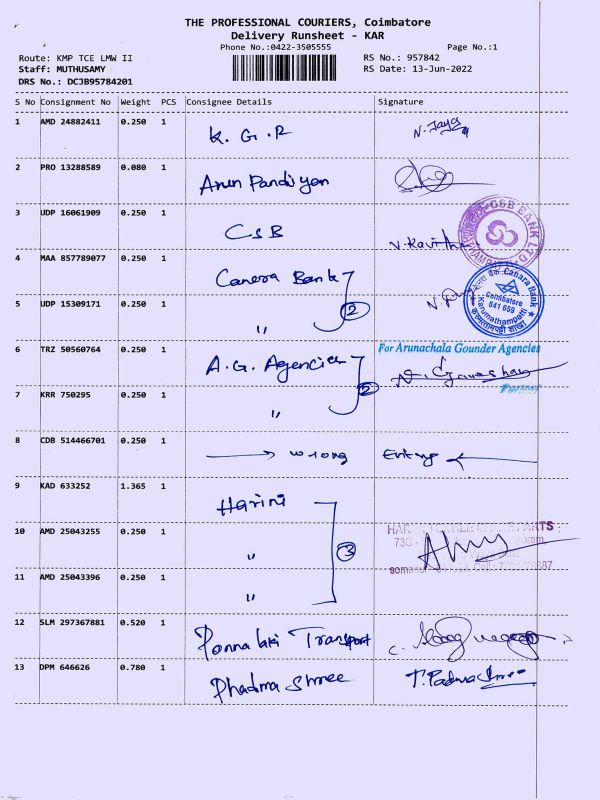 THE PROFESSIONAL COURIERS, Coimbatore
Delivery Runsheet - KAR
Phone No.:0422-3505555 Page No.:1
Route: KMP TCE LMW II RS No.: 957842
Staff: MUTHUSAMY RS Date: 13-Jun-2022
DRS No.: DCJB95784201
S No Consignment No Weight PCS Consignee Details Signature
1 AMD 24882411 0.250 1 K. G. R N. Jaya
2 PRO 13288589 0.080 1 Arun Pandiyan
3 UDP 16061909 0.250 1 CSB N. Kavitha
CSB BANK LTD
4 MAA 857789077 0.250 1 Canera Bank
Canara Bank
Coimbatore
641 659
Karumathampatti
5 UDP 15309171 0.250 1 " 2
6 TRZ 50560764 0.250 1 A.G. Agencies
For Arunachala Gounder Agencies
Partner
7 KRR 750295 0.250 1 " 2
8 CDB 514466701 0.250 1 wrong Entry
9 KAD 633252 1.365 1 Harini
10 AMD 25043255 0.250 1 " 3
11 AMD 25043396 0.250 1 "
12 SLM 297367881 0.520 1 Ponnalaki Transport
13 DPM 646626 0.780 1 Phadma Shree T. Padma Shree